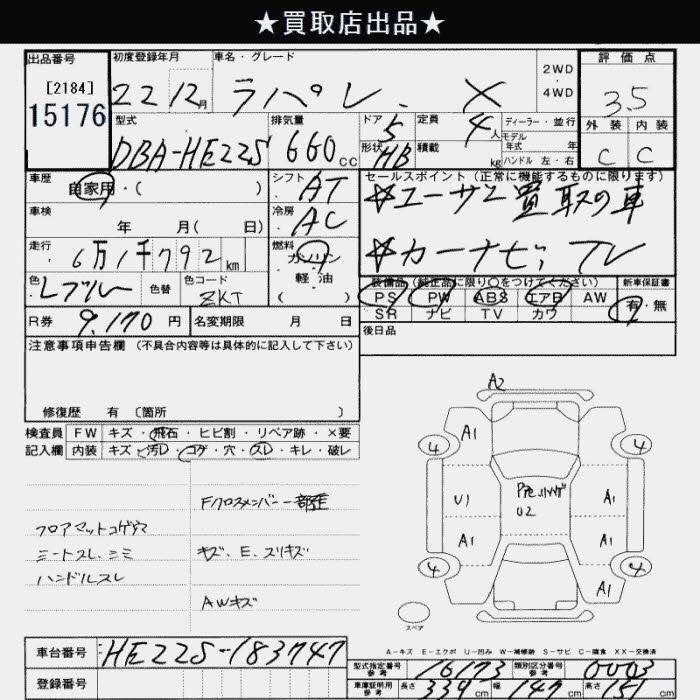 ★買取店出品★
出品番号
[2184]
15176
初度登録年月
22 12月
車名・グレード
ラパン . X
2WD
・
4WD
評価点
3.5
外装 内装
C C
型式
DBA-HE22S
排気量
660cc
ドア 5
形状 HB
定員 4人
積載 kg
ディーラー・並行
モデル
年式 年
ハンドル 左・右
車歴
自家用・( )
シフト AT
車検
年 月( 日)
冷房 AC
走行
6万1千792km
燃料
ガソリン
軽油
( )
色 Lブルー
色替
色コード
ZKT
R券 9,170円
名変期限 月 日
セールスポイント(正常に機能するものに限ります)
☆ユーザー買取の車
☆カーナビ, TV
装備品(純正品に限り○をつけてください)
PS PW ABS エアB AW
SR ナビ TV カワ
新車保証書
有・無
後日品
注意事項申告欄(不具合内容等は具体的に記入して下さい)
修復歴 有 〔箇所 〕
検査員
記入欄
FW キズ・飛石・ヒビ割・リペア跡・×要
内装 キズ・汚レ・コゲ・穴・スレ・キレ・破レ
フロアマットコゲ穴
シートスレ、シミ
ハンドルスレ
Fクロスメンバー一部歪
キズ、E、スリキズ
AWキズ
A2
A1
4
4
U1
A1
A1
A1
A1
U2
4
4
スペア
A-キズ E-エクボ U-凹み W-補修跡 S-サビ C-腐食 XX-交換済
車台番号 HE22S-183747
登録番号
型式指定番号
参考
16173
類別区分番号
参考
0003
車庫証明用
参考
長さ 339cm
幅 147cm
高さ 151cm